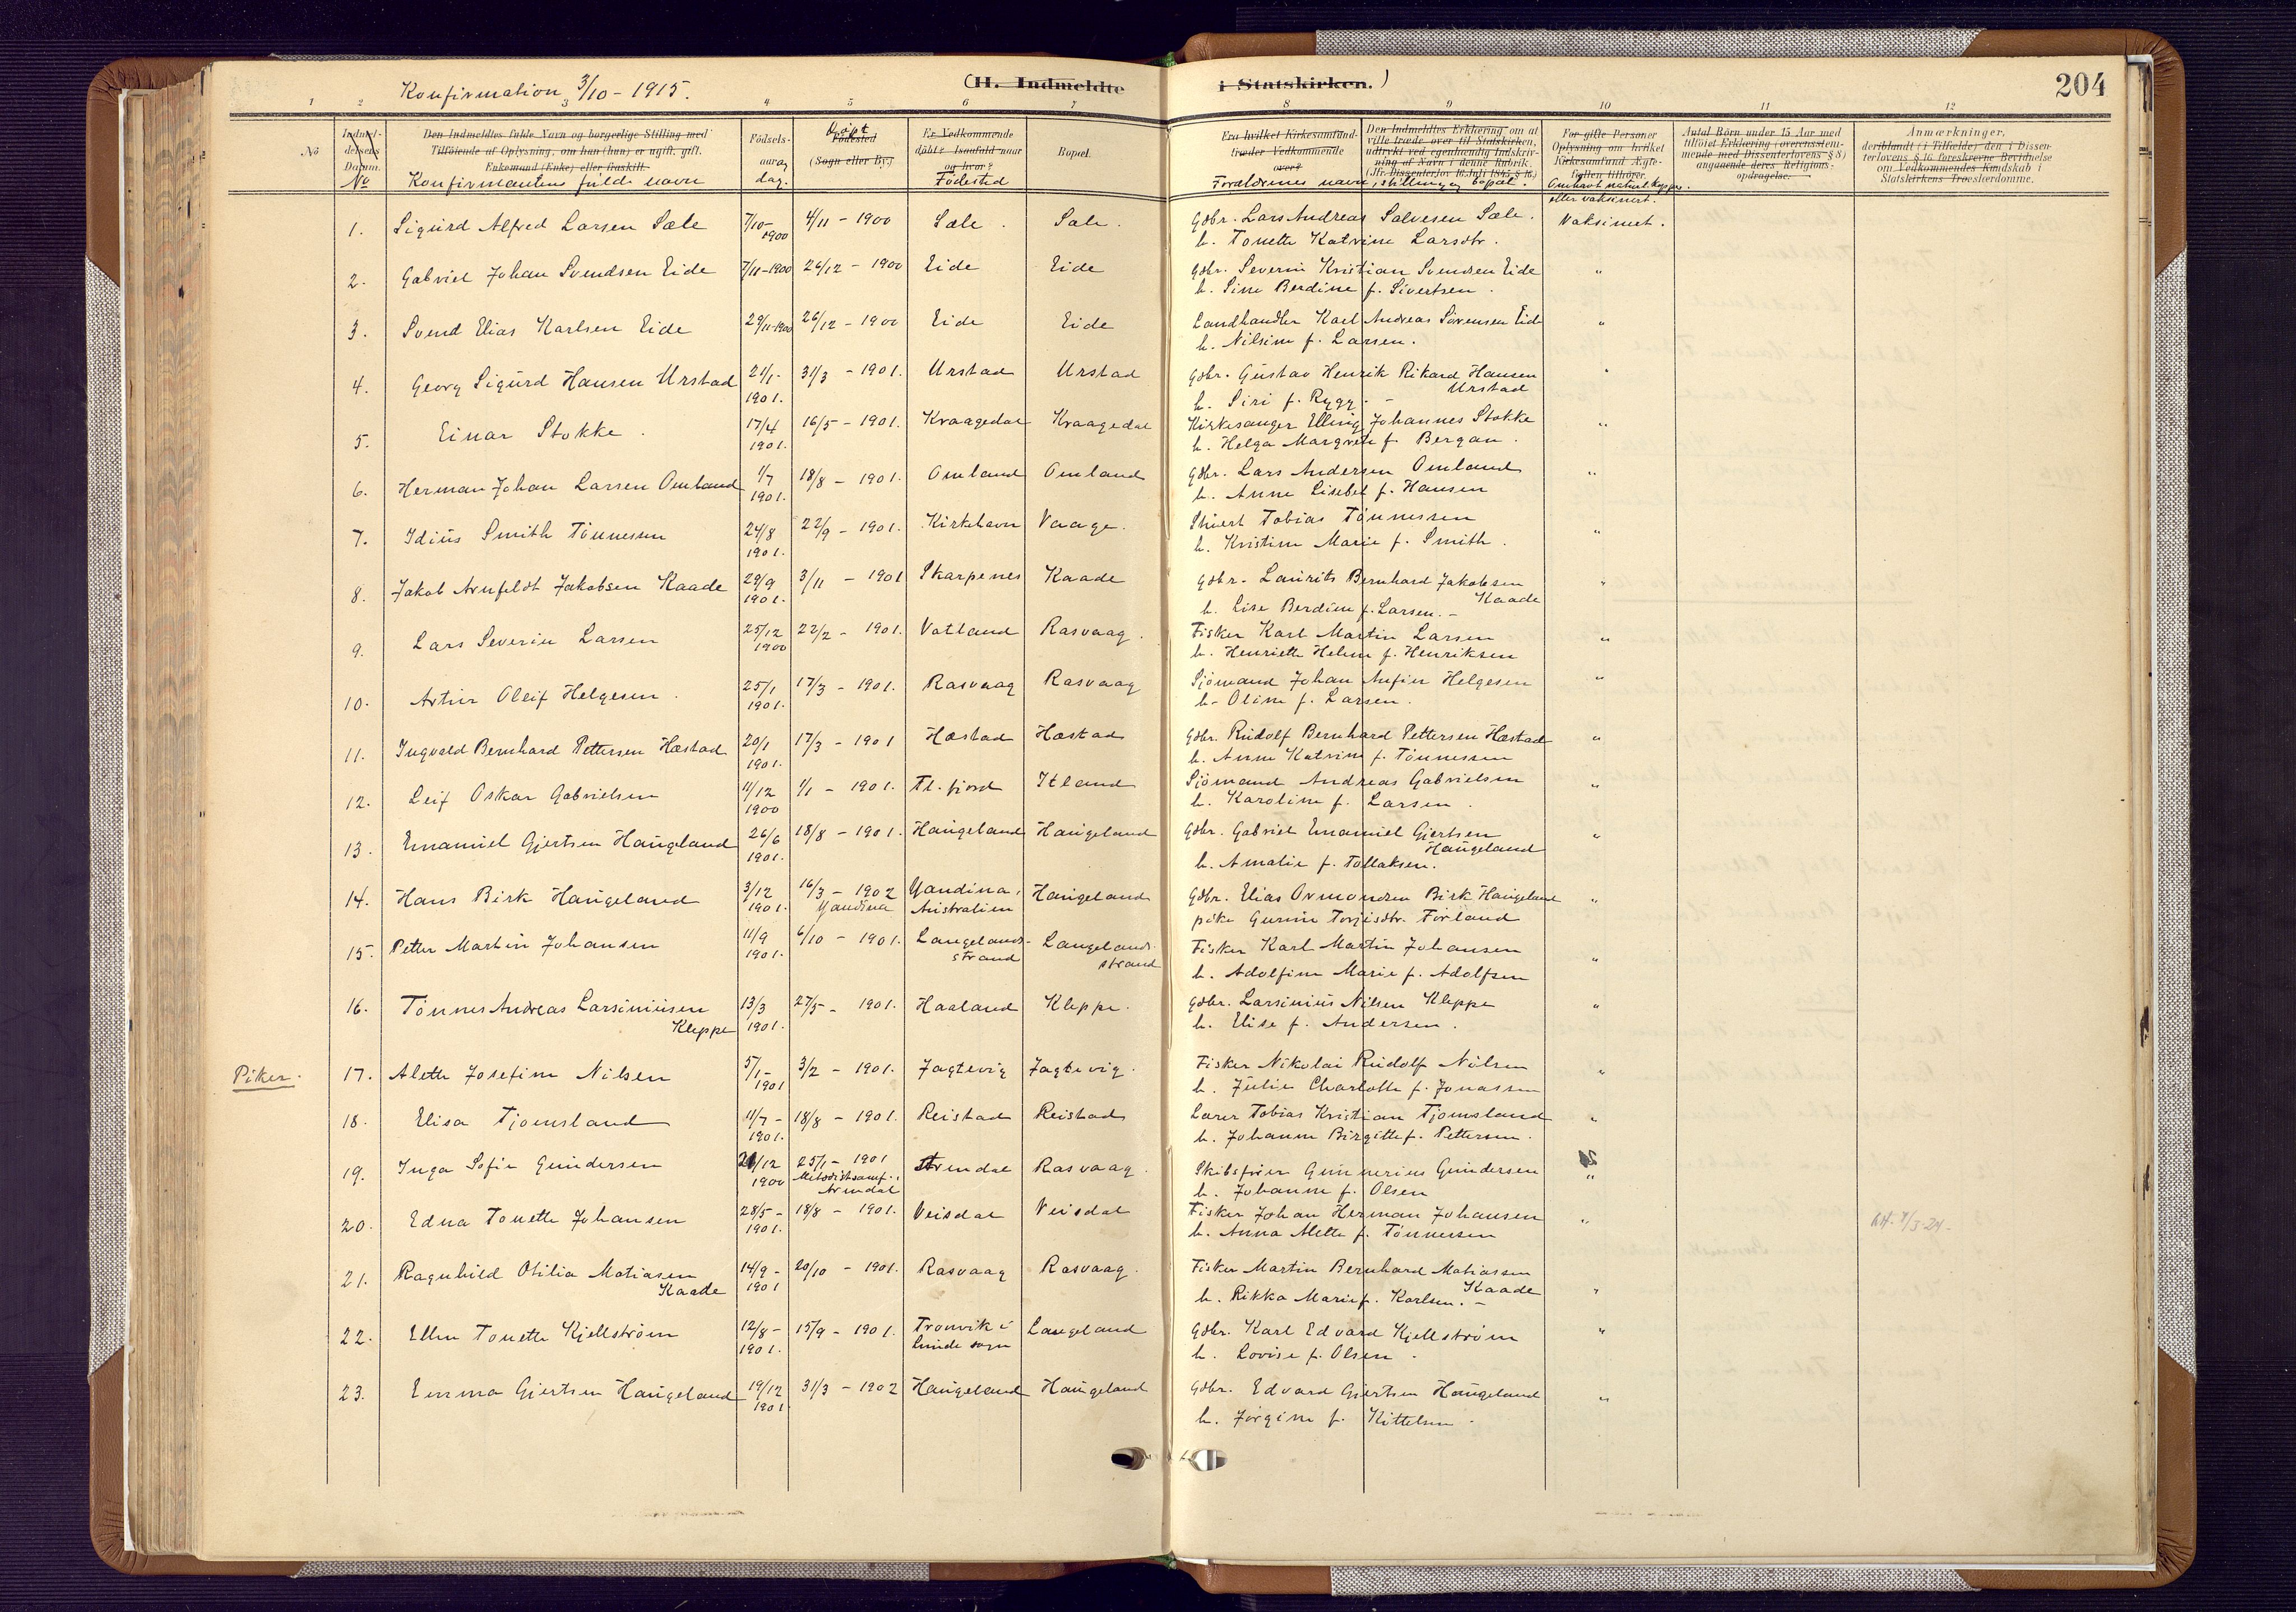 Konfirmation 3/10 - 1915.
(H. Indmeldte i Statskirken.)
204
1 2 3 4 5 6 7 8 9 10 11 12
No
Indmel-
delsens
Datum.
No
Den Indmeldtes fulde Navn og borgerlige Stilling med
Tilföiende af Oplysning, om han (hun) er ugift, gift,
Enkemand (Enke) eller fraskilt.
Konfirmantens fulde navn
Födsels-
aar og
dag.
Döpt
Födested
(Sogn eller By.)
Er Vedkommende
döbt? Isaafald naar
og hvor?
Födested
Bopæl.
Fra hvilket Kirkesamfund
træder Vedkommende
over?
Forældrenes navn, stilling og bopæl.
Den Indmeldtes Erklæring om at
ville træde over til Statskirken,
udtrykt ved egenhændig Indskriv-
ning af Navn i denne Rubrik.
(Jfr. Dissenterlov 16 Juli 1845 § 16.)
For gifte Personer
Oplysning om hvilket
Kirkesamfund Ægte-
fællen tilhörer.
Om havt naturl. kopper
eller vaksinert.
Antal Börn under 15 Aar med
tilföiet Erklæring (overensstem-
mende med Dissenterlovens § 8)
angaaende deres Religions-
opdragelse.
Anmærkninger,
deriblandt (i Tilfælde) den i Dissen-
terlovens § 16 foreskrevne Bevidnelse
om Vedkommendes Kundskab i
Statskirkens Troeslærdomme.
1. Sigurd Alfred Larsen Sæle 7/10- 1900 4/11 - 1900 Sæle. Sæle. Gdbr. Lars Andreas Salvesen Sæle. Vaksinert.
h. Tonette Katrine Larsdtr.
2. Gabriel Johan Svendsen Eide 7/11-1900 26/12 - 1900 Eide Eide Gdbr. Severin Kristian Svendsen Eide "
h. Sine Berdine f. Sivertsen.
3. Svend Elias Karlsen Eide 29/11-1900 26/12 - 1900 Eide Eide Landhandler Karl Andreas Sörensen Eide "
h. Nilsine f. Larsen.
4. Georg Sigurd Hansen Urstad 21/1- 1901. 31/3 - 1901. Urstad Urstad Gdbr. Gustav Henrik Rikard Hansen Urstad "
h. Siri f. Rygg. -
5. Einar Stokke. 17/4 1901. 16/5 - 1901. Kraagedal Kraagedal Kirkesanger Elling Johannes Stokke "
h. Helga Margrete f. Bergan.
6. Herman Johan Larsen Omland 1/7 1901. 18/8 - 1901. Omland Omland Gdbr. Lars Andersen Omland "
h. Anne Lisebet f. Hansen
7. Idius Smith Tönnesen 24/8 1901. 22/9 - 1901. Kirkehavn Vaage. Tobias Tönnessen "
h. Kristine Marie f. Smith.
8. Jakob Arnfeldt Jakobsen Kaade 29/9 1901. 3/11 - 1901 Skarpenes Kaade Gdbr. Laurits Bernhard Jakobsen Kaade "
h. Lise Berdine f. Larsen. -
9. Lars Severin Larsen 25/12 1900 22/2 - 1901. Vatland Rasvaag. Fisker Karl Martin Larsen "
h. Henriette Helene f. Henriksen
10. Artur Oleif Helgesen. 25/1 1901. 17/3 - 1901. Rasvaag Rasvaag Sjömand Johan Anfin Helgesen "
h. Oline f. Larsen.
11. Ingvald Bernhard Pettersen Hæstad 20/1 1901. 17/3 - 1901 Hæstad Hæstad Gdbr. Rudolf Bernhard Pettersen Hæstad "
h. Anne Katrine f. Tönnessen
12. Leif Oskar Gabrielsen 11/12 1900 1/1 - 1901. Fl. fjord Itland Sjömand Andreas Gabrielsen "
h. Karoline f. Larsen.
13. Emanuel Gjertsen Haugeland 26/6 1901. 18/8 - 1901. Haugeland Haugeland Gdbr. Gabriel Emanuel Gjertsen Haugeland "
h. Amalie f. Tollaksen.
14. Hans Birk Haugeland 3/12 1901. 16/3 - 1902 Yandina Yandina, Australien Haugeland Gdbr. Elias Ormondsen Birk Haugeland "
pike Gurine Torjisdtr. Förland
15. Petter Martin Johansen 11/9 1901. 6/10 - 1901. Langelands-strand Langelands-strand Fisker Karl Martin Johansen "
h. Adolfine Marie f. Adolfsen
16. Tönnes Andreas Larsiniusen Kleppe 13/3 1901. 27/5 - 1901. Haaland Kleppe. Gdbr. Larsinius Nilsen Kleppe "
h. Elise f. Andersen.
Piker.
17. Alette Josefine Nilsen 5/1- 1901 3/2 - 1901. Jagtevig Jagtevig. Fisker Nikolai Rudolf Nilsen "
h. Julie Charlotte f. Jonassen
18. Elisa Tjomsland 11/7 - 1901. 18/8 - 1901. Reistad Reistad Lærer Tobias Kristian Tjomsland "
h. Johanne Birgitte f. Pettersen.
19. Inga Sofie Gundersen 21/12 1900 25/1 - 1901 Metodistsamf. i Arendal Arendal Rasvaag Skibsfører Gunnerius Gundersen "
h. Johanne f. Olsen
20. Edna Tonette Johansen 28/5 - 1901. 18/8 - 1901. Veisdal Veisdal Fisker Johan Herman Johansen "
h. Anna Alette f. Tönnesen
21. Ragnhild Otilia Matiasen Kaade 14/9 - 1901 20/10 - 1901. Rasvaag Rasvaag. Fisker Martin Bernhard Matiassen Kaade "
h. Rikka Marie f. Karlsen. -
22. Ellen Tonette Kjellström 12/8 - 1901. 15/9 - 1901. Tronvik i Lunde sogn Langeland Gdbr. Karl Edvard Kjellström "
h. Lovise f. Olsen.
23. Emma Gjertsen Haugeland 19/12 1901 31/3 - 1902 Haugeland Haugeland Gdbr. Edvard Gjertsen Haugeland "
h. Jörgine f. Kittelsen.